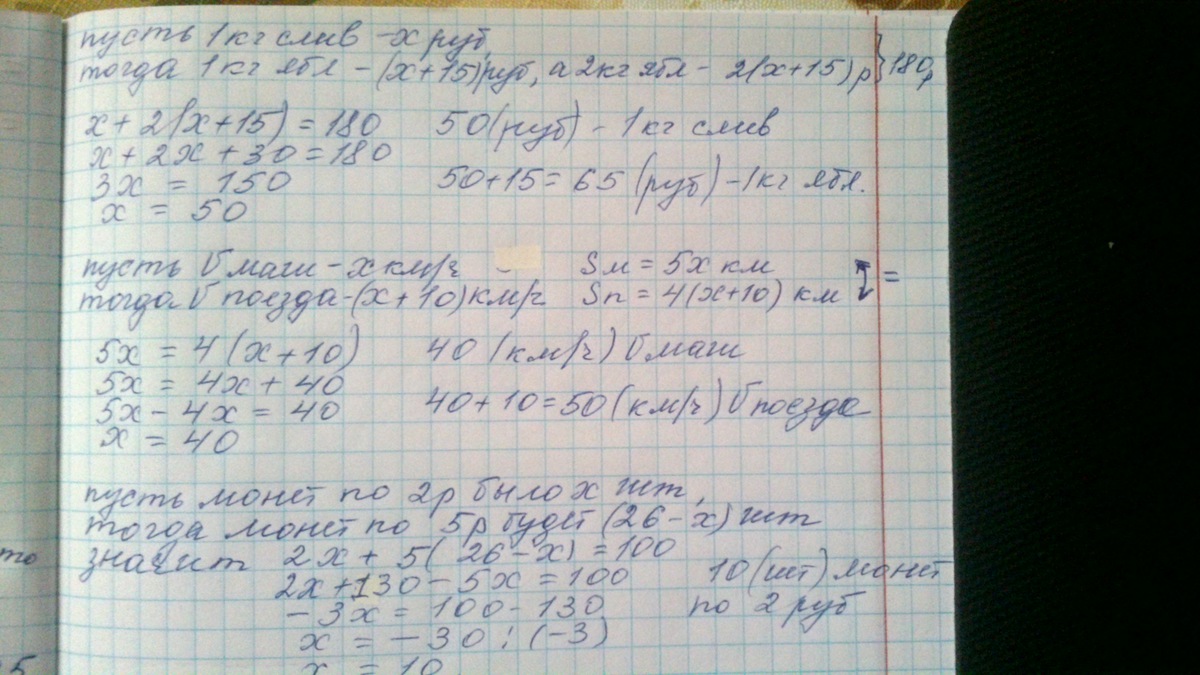 пусть 1 кг слив - х руб,
тогда 1 кг ябл - (х+15) руб, а 2 кг ябл - 2(х+15) р } 180р
х + 2(х+15) = 180
х + 2х + 30 = 180
3х = 150
х = 50
50 (руб) - 1 кг слив
50+15 = 65 (руб) - 1 кг ябл.
пусть v маш - х км/ч -
тогда v поезда - (х+10) км/ч
Sм = 5х км
Sп = 4(х+10) км
=
5х = 4(х+10)
5х = 4х + 40
5х - 4х = 40
х = 40
40 (км/ч) v маш
40+10=50 (км/ч) v поезда
пусть монет по 2р было х шт,
тогда монет по 5р будет (26-х) шт
значит 2х + 5(26-х) = 100
2х+130-5х = 100
-3х = 100-130
х = -30 : (-3)
х = 10
10 (шт) монет
по 2 руб
то
5